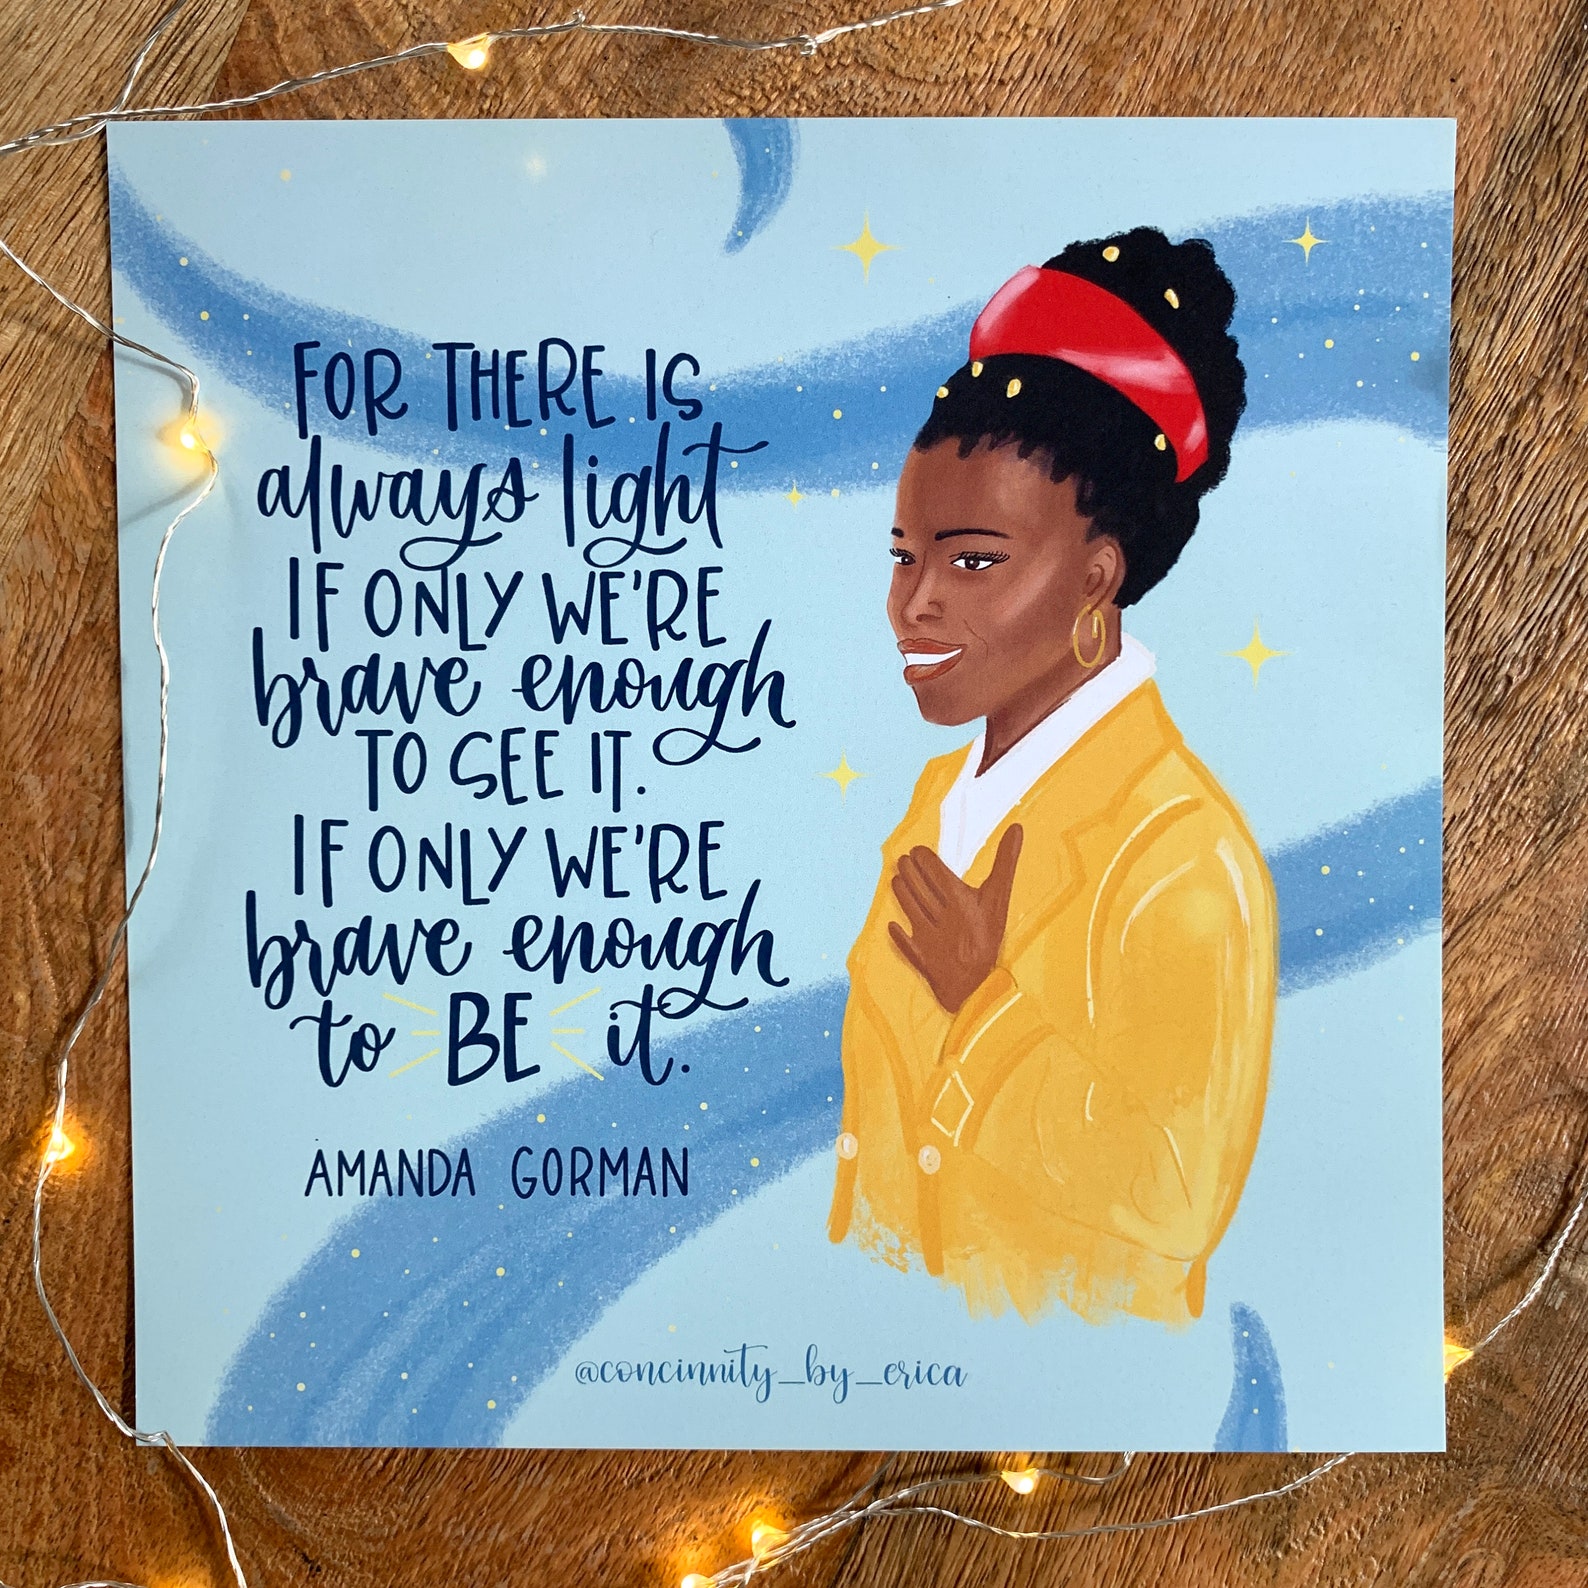 FOR THERE IS
always light
IF ONLY WE'RE
brave enough
TO SEE IT.
IF ONLY WE'RE
brave enough
to BE it.
AMANDA GORMAN
@concinnity_by_erica